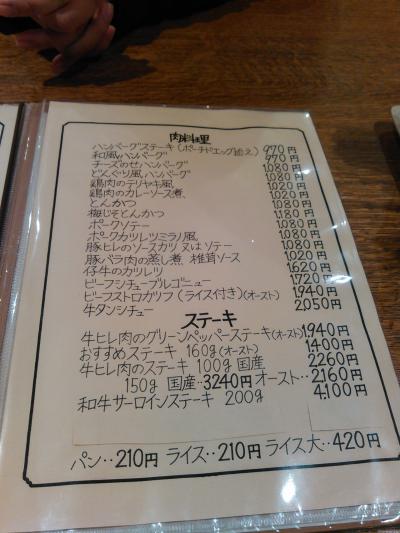 肉料理
ハンバーグステーキ(ポーチドエッグ添え) 970円
和風ハンバーグ 970円
チーズのせハンバーグ 1,080円
どんぐり風ハンバーグ 1,080円
鶏肉のテリヤキ風 1,020円
鶏肉のカレーソース煮 1,020円
とんかつ 1,080円
梅じそとんかつ 1,180円
ポークソテー 1,080円
ポークカツレツミラノ風 1,080円
豚ヒレのソースカツ又はソテー 1,080円
豚バラ肉の蒸し煮、椎茸ソース 1,020円
仔牛のカツレツ 1,620円
ビーフシチューブルゴニュ 1,720円
ビーフストロガノフ(ライス付き)(オースト) 1,940円
牛タンシチュー 2,050円
ステーキ
牛ヒレ肉のグリーンペッパーステーキ(オースト) 1,940円
おすすめステーキ 160g(オースト) 1,400円
牛ヒレ肉のステーキ 100g 国産 2,260円
150g 国産‥3240円 オースト‥2,160円
和牛サーロインステーキ 200g 4,100円
パン‥210円 ライス‥210円 ライス大‥420円